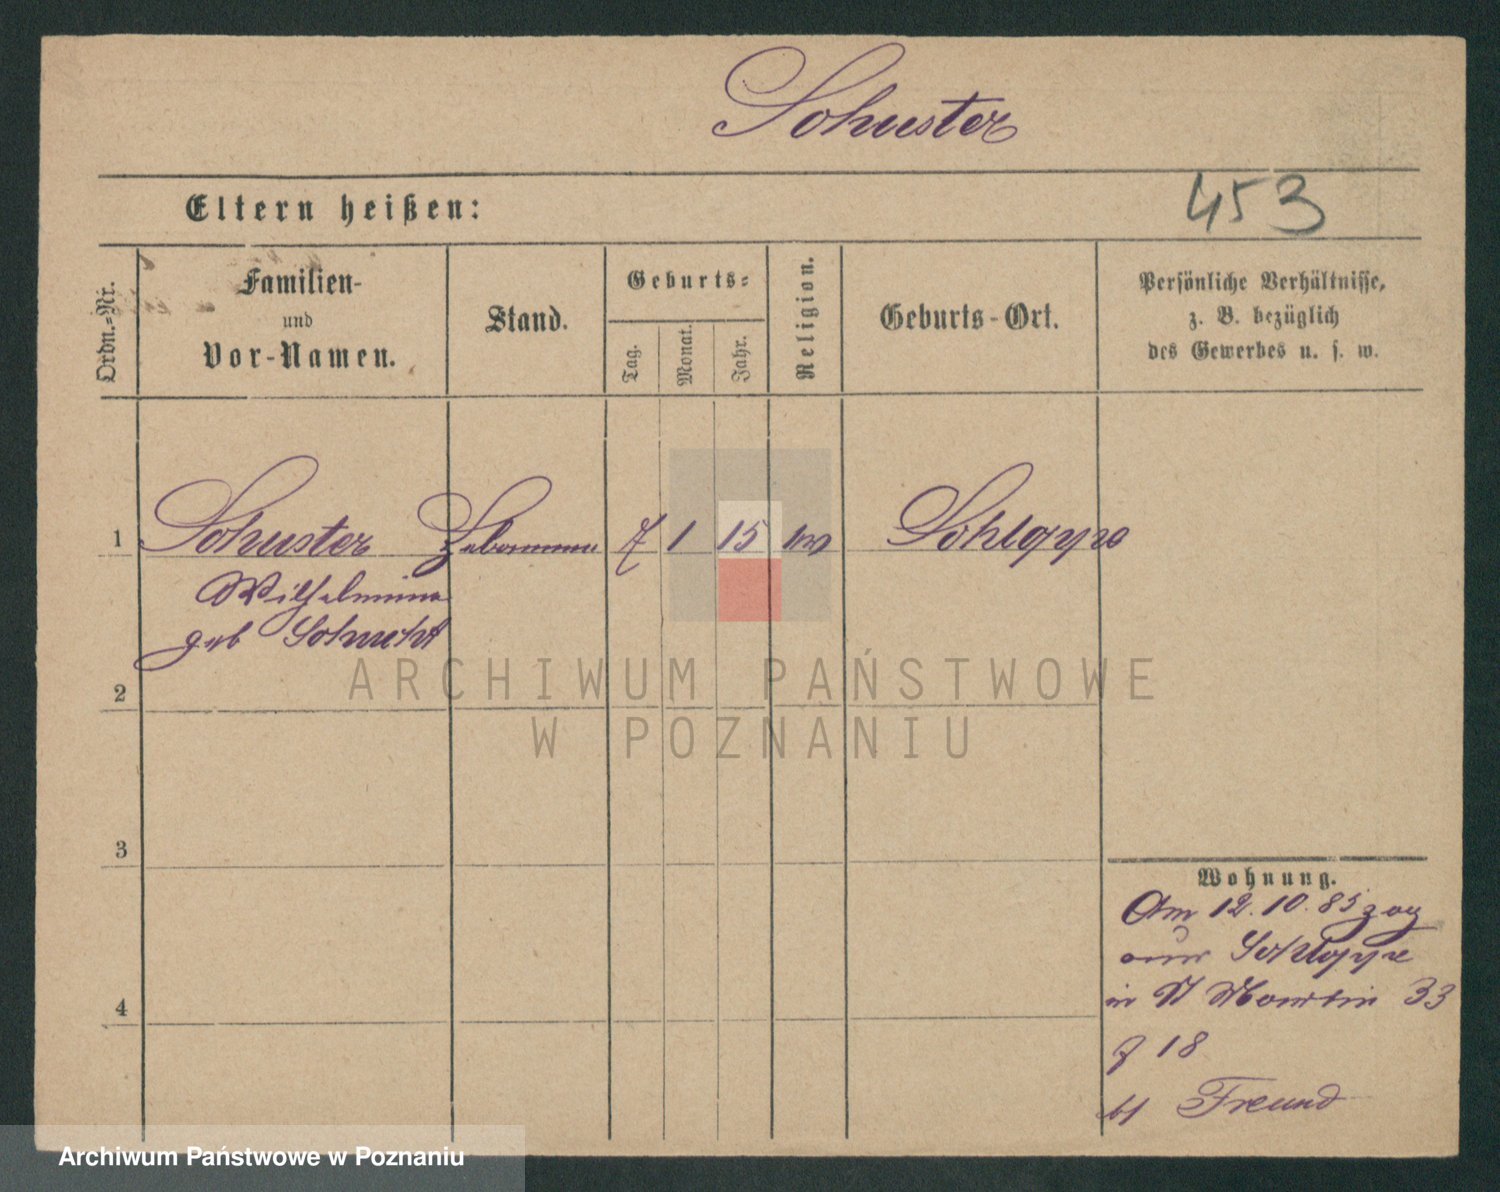 Schuster
453
Eltern heißen:
Ordn.-Nr.
Familien-
und
Vor-Namen.
Stand.
Geburts-
Tag.
Monat.
Jahr.
Religion.
Geburts-Ort.
Persönliche Verhältnisse,
z. B. bezüglich
des Gewerbes u. s. w.
1 Schuster Hebamme 7 1 15 ev Schloppe
Wilhelmine
geb
2
3
4
Wohnung.
Am 12.10.85 zog
aus Schloppe
in St Martin 33
18
bei Freund
ARCHIWUM PAŃSTWOWE
W POZNANIU
Archiwum Państwowe w Poznaniu